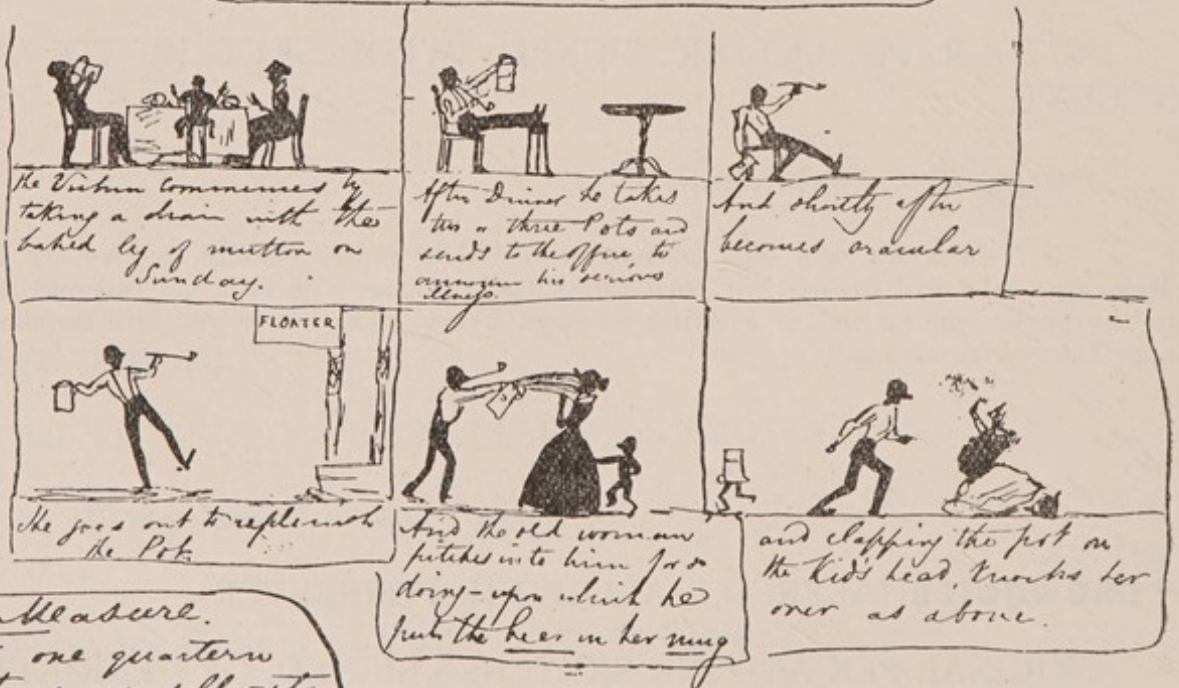 the Victim commences by
taking a drain with the
baked leg of mutton on
Sunday.
After Dinner he takes
two or three Pots and
sends to the office to
announce his serious
illness.
And shortly after
becomes oracular
FLOATER
He goes out to replenish
the Pot.
And the old woman
pitches into him for so
doing - upon which he
puts the beer in her mug
and clapping the pot on
the Kid's head, knocks her
over as above.
Measure.
one quartern